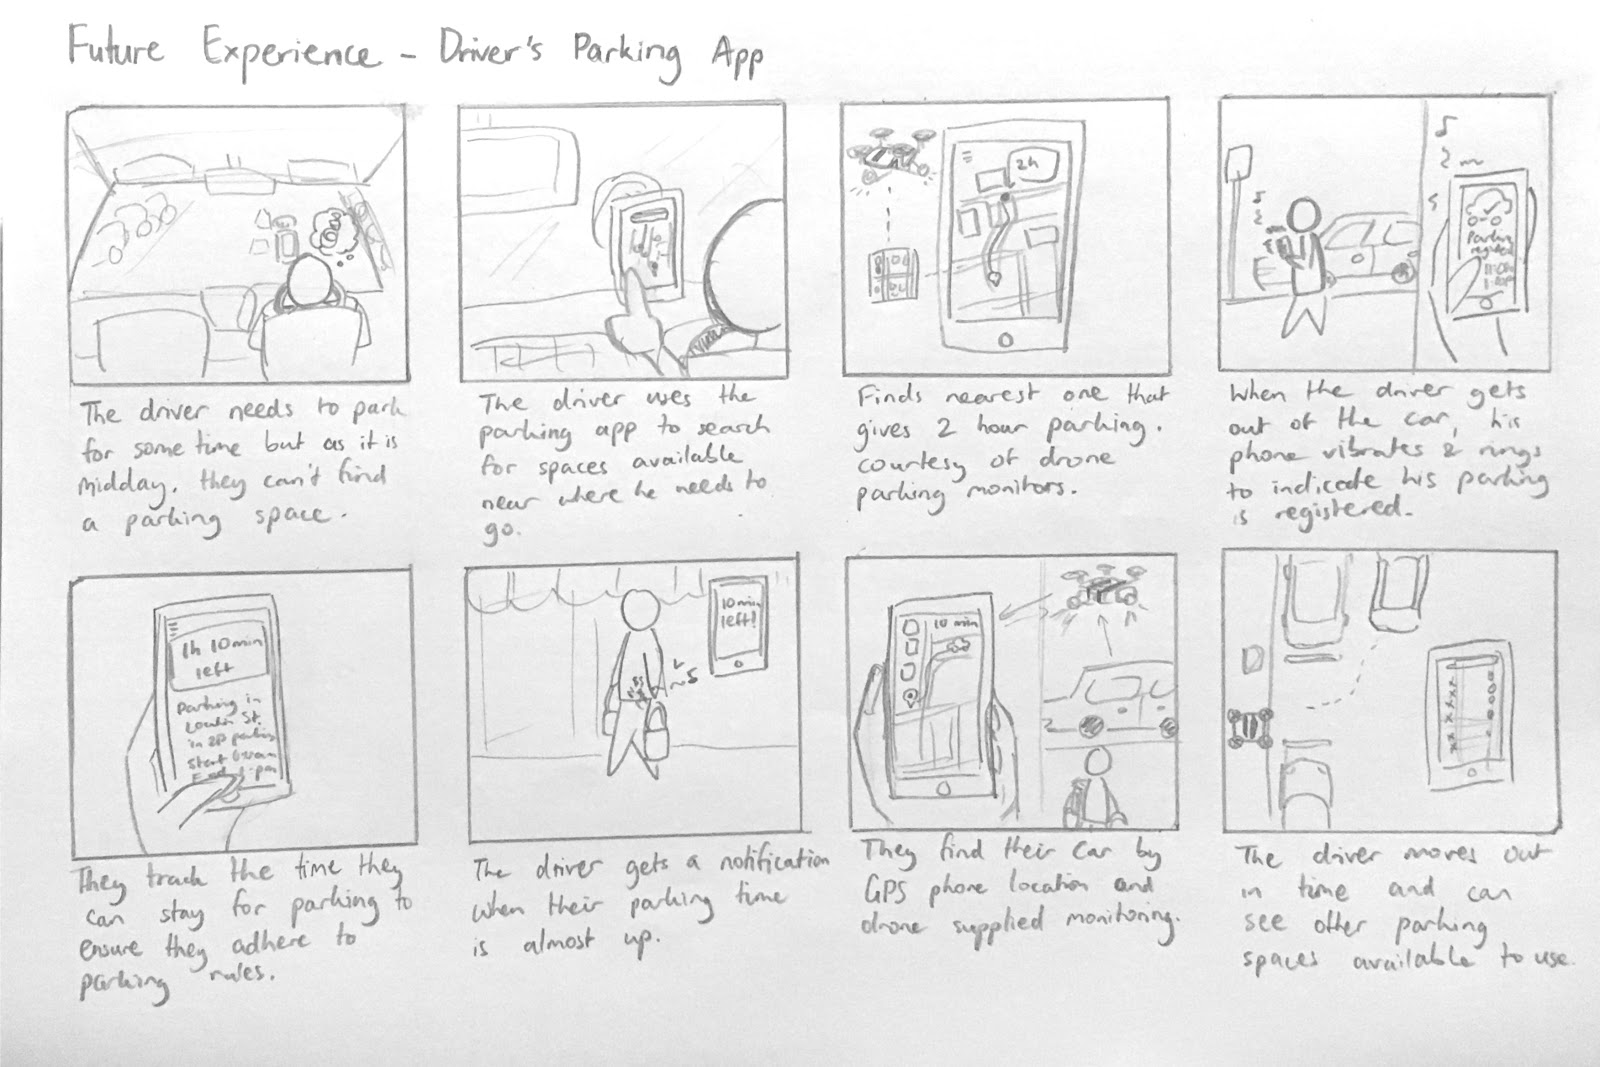 Future Experience - Driver's Parking App
2h
Parking
registered
The driver needs to park
for some time but as it is
midday, they can't find
a parking space.
The driver uses the
parking app to search
for spaces available
near where he needs to
go.
Finds nearest one that
gives 2 hour parking.
courtesy of drone
parking monitors.
When the driver gets
out of the car, his
phone vibrates & rings
to indicate his parking
is registered.
1h 10min
left
Parking in
St.
in 2P parking
Start
End
10min
left!
10 min
They track the time they
can stay for parking to
ensure they adhere to
parking rules.
The driver gets a notification
when their parking time
is almost up.
They find their car by
GPS phone location and
drone supplied monitoring.
The driver moves out
in time and can
see other parking
spaces available to use.